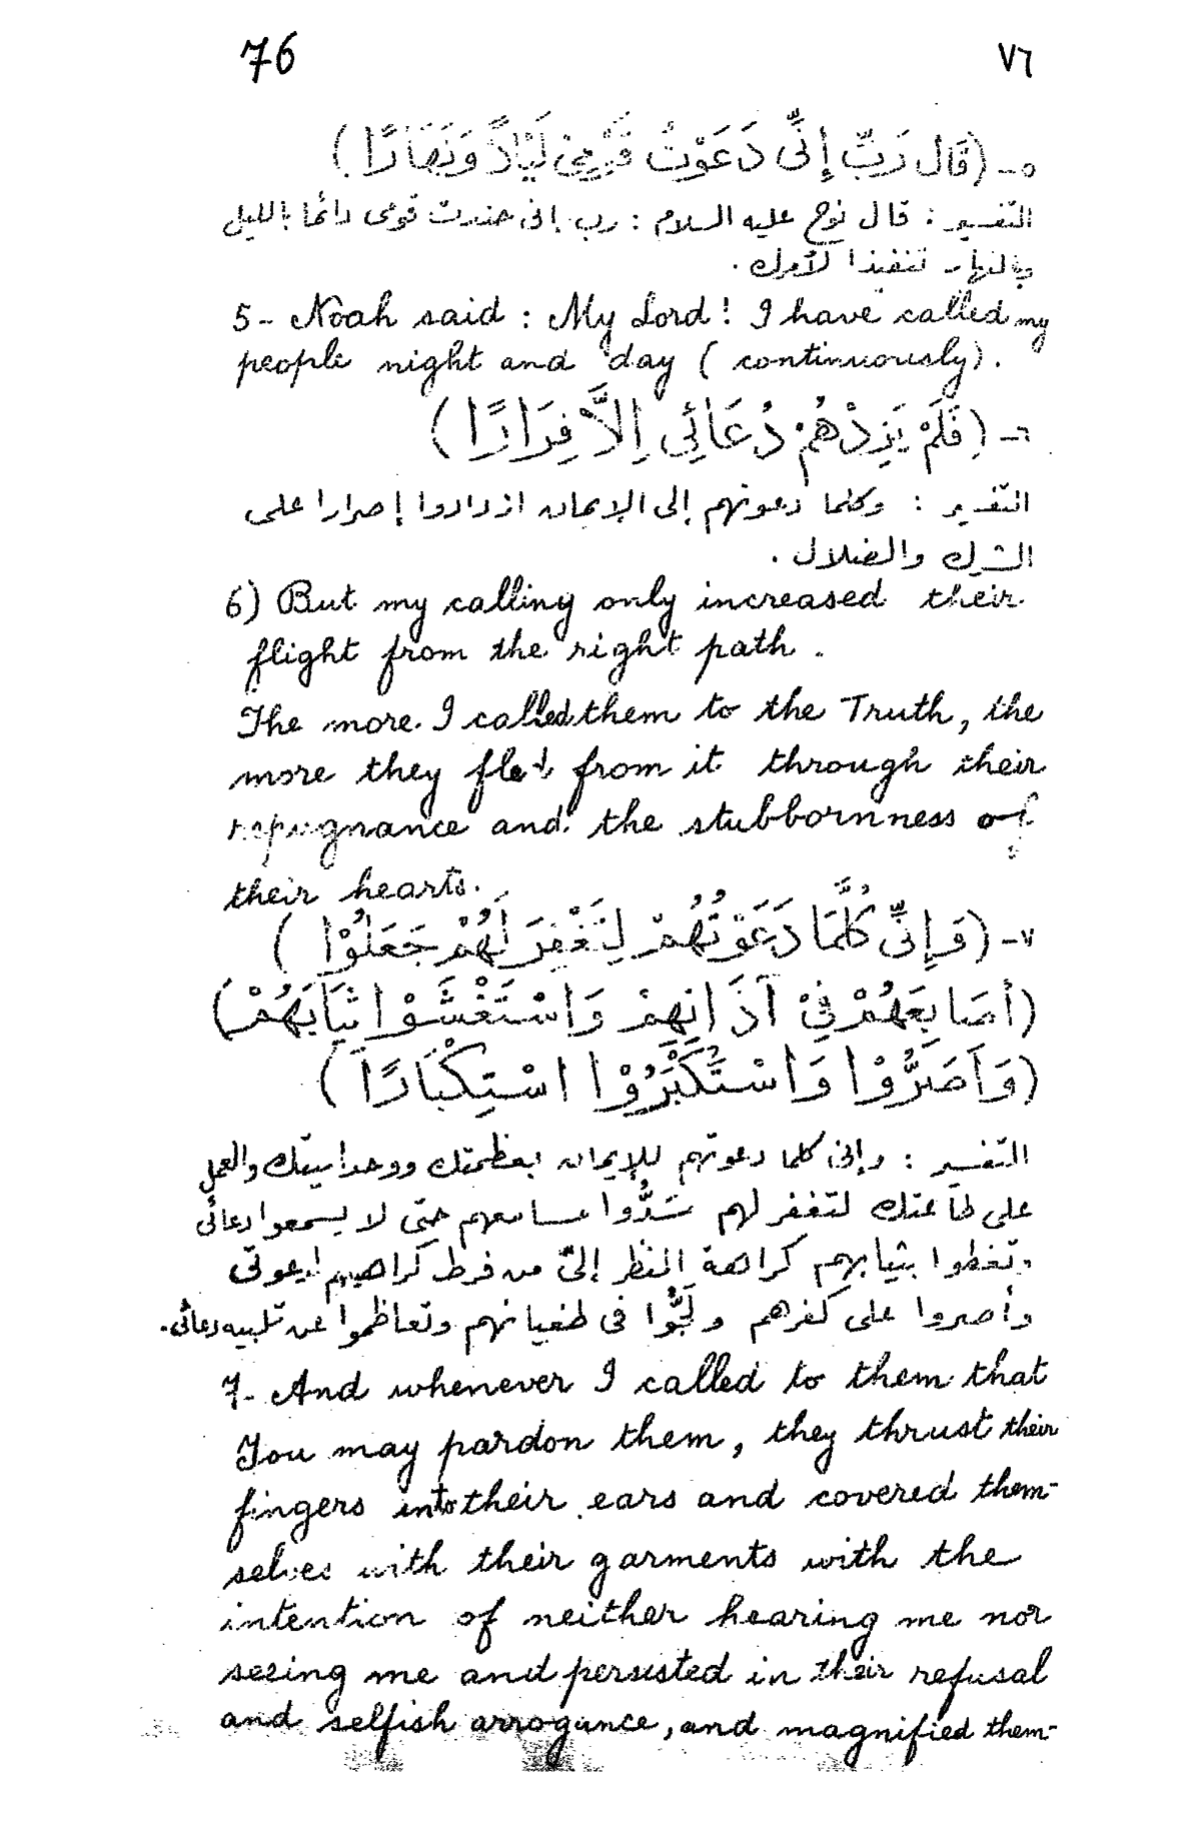 76 ٧٦
٥- (قَالَ رَبِّ إِنِّى دَعَوْتُ قَوْمِىْ لَيْلاً وَنَهَارًا)
التفسير : قال نوح عليه السلام : رب إنى حذرت قومى دائما بالليل
وبالنهار تنفيذا لأمرك .
5- Noah said : My Lord ! I have called my
people night and day ( continuously).
٦- (فَلَمْ يَزِدْهُمْ دُعَائِى إِلاَّ فِرَارًا)
التفسير : وكلما دعوتهم إلى الإيمان ازدادوا إصرارا على
الشرك والضلال .
6) But my calling only increased their
flight from the right path .
The more I called them to the Truth, the
more they fled from it through their
repugnance and the stubbornness of
their hearts.
٧- (وَإِنِّى كُلَّمَا دَعَوْتُهُمْ لِتَغْفِرَ لَهُمْ جَعَلُوْا )
(أَصَابِعَهُمْ فِىْ آذَانِهِمْ وَاسْتَغْشَوْا ثِيَابَهُمْ)
(وَأَصَرُّوْا وَاسْتَكْبَرُوْا اسْتِكْبَارًا )
التفسير : وإنى كلما دعوتهم للإيمان بعظمتك ووحدانيتك والعمل
على طاعتك لتغفر لهم سَدُّوا مسامعهم حتى لا يسمعوا دعائى
وتغطوا بثيابهم كراهة النظر إلىّ من فرط كراهيتهم لدعوتى
وأصروا على كفرهم ولَجُّوا فى طغيانهم وتعاظموا عن تلبيه دعائى.
7- And whenever I called to them that
You may pardon them, they thrust their
fingers into their ears and covered them-
selves with their garments with the
intention of neither hearing me nor
seeing me and persisted in their refusal
and selfish arrogance, and magnified them-